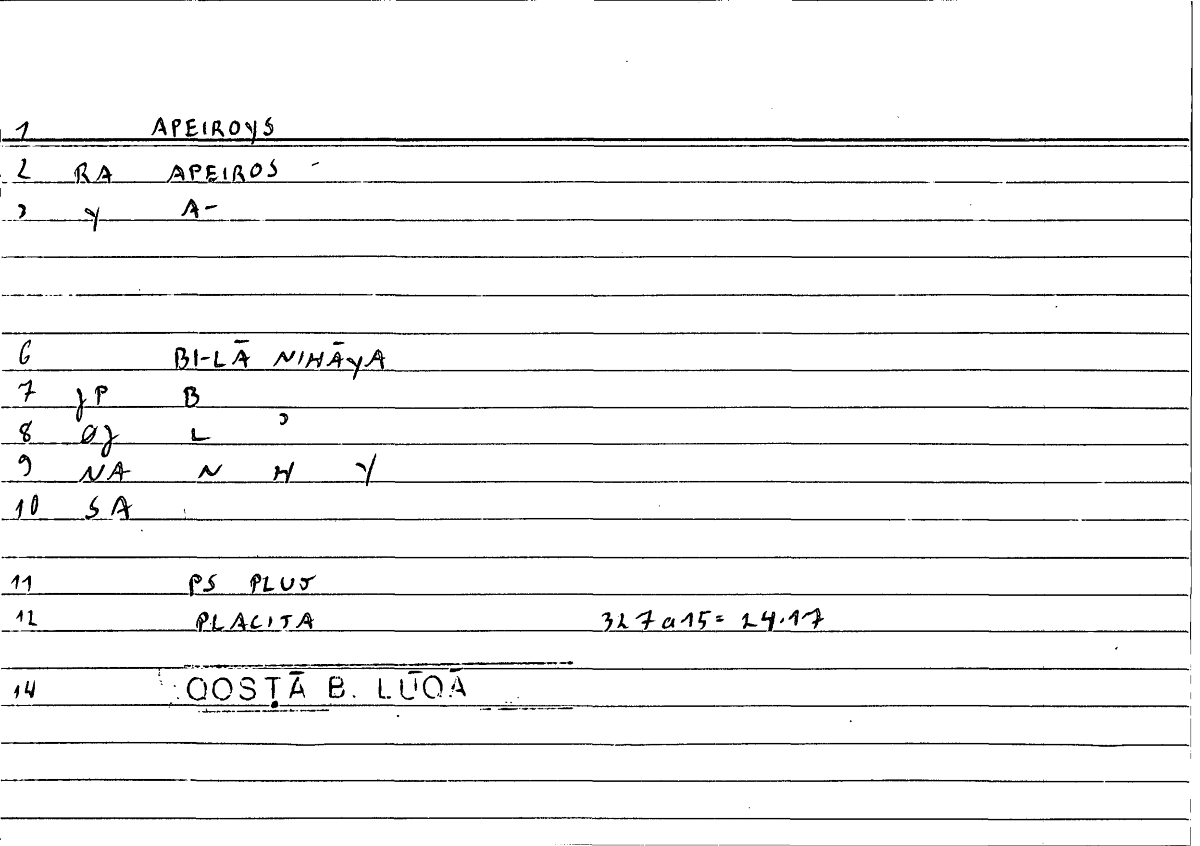 1 APEIROYS
2 RA APEIROS -
3 Y A-
6 BI-LĀ NIHĀYA
7 JP B
8 0J L ʾ
9 NA N H Y
10 SA
11 PS PLUT
12 PLACITA 327a15= 24.17
14 QOSṬĀ B. LŪQĀ